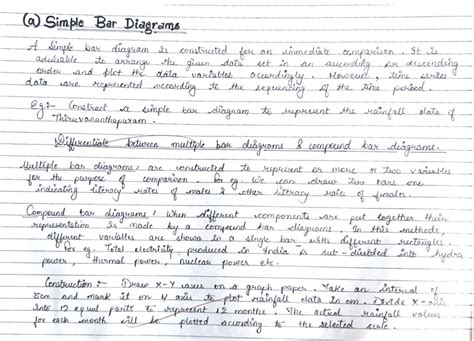 (a) Simple Bar Diagrams
A Simple bar diagram is constructed for an immediate comparison. It is
advisable to arrange the given data set in an ascending or descending
order and plot the data variables accordingly. However, time series
data are represented according to the sequencing of the time period.
Eg:- Construct a simple bar diagram to represent the rainfall data of
Thiruvananthapuram.
Differentiate between multiple bar diagrams & compound bar diagrams.
Multiple bar diagrams: are constructed to represent or more or two variables
for the purpose of comparison. For eg. We can draw two bars one
indicating literacy rates of males & other literacy rate of females.
Compound bar diagrams: When different components are put together their
representation is made by a compound bar diagrams. In this methods,
different variables are shown in a single bar with different rectangles
For eg. Total electricity produced in India is sub-divided into hydra
power, thermal power, nuclear power etc.
Construction:- Draw X-Y axes on a graph paper. Take an interval of
5cm and mark it on Y axis to plot rainfall data in cm. Divide X-axis
into 12 equal parts to represent 12 months. The actual rainfall values
for each month will be plotted according to the selected scale.